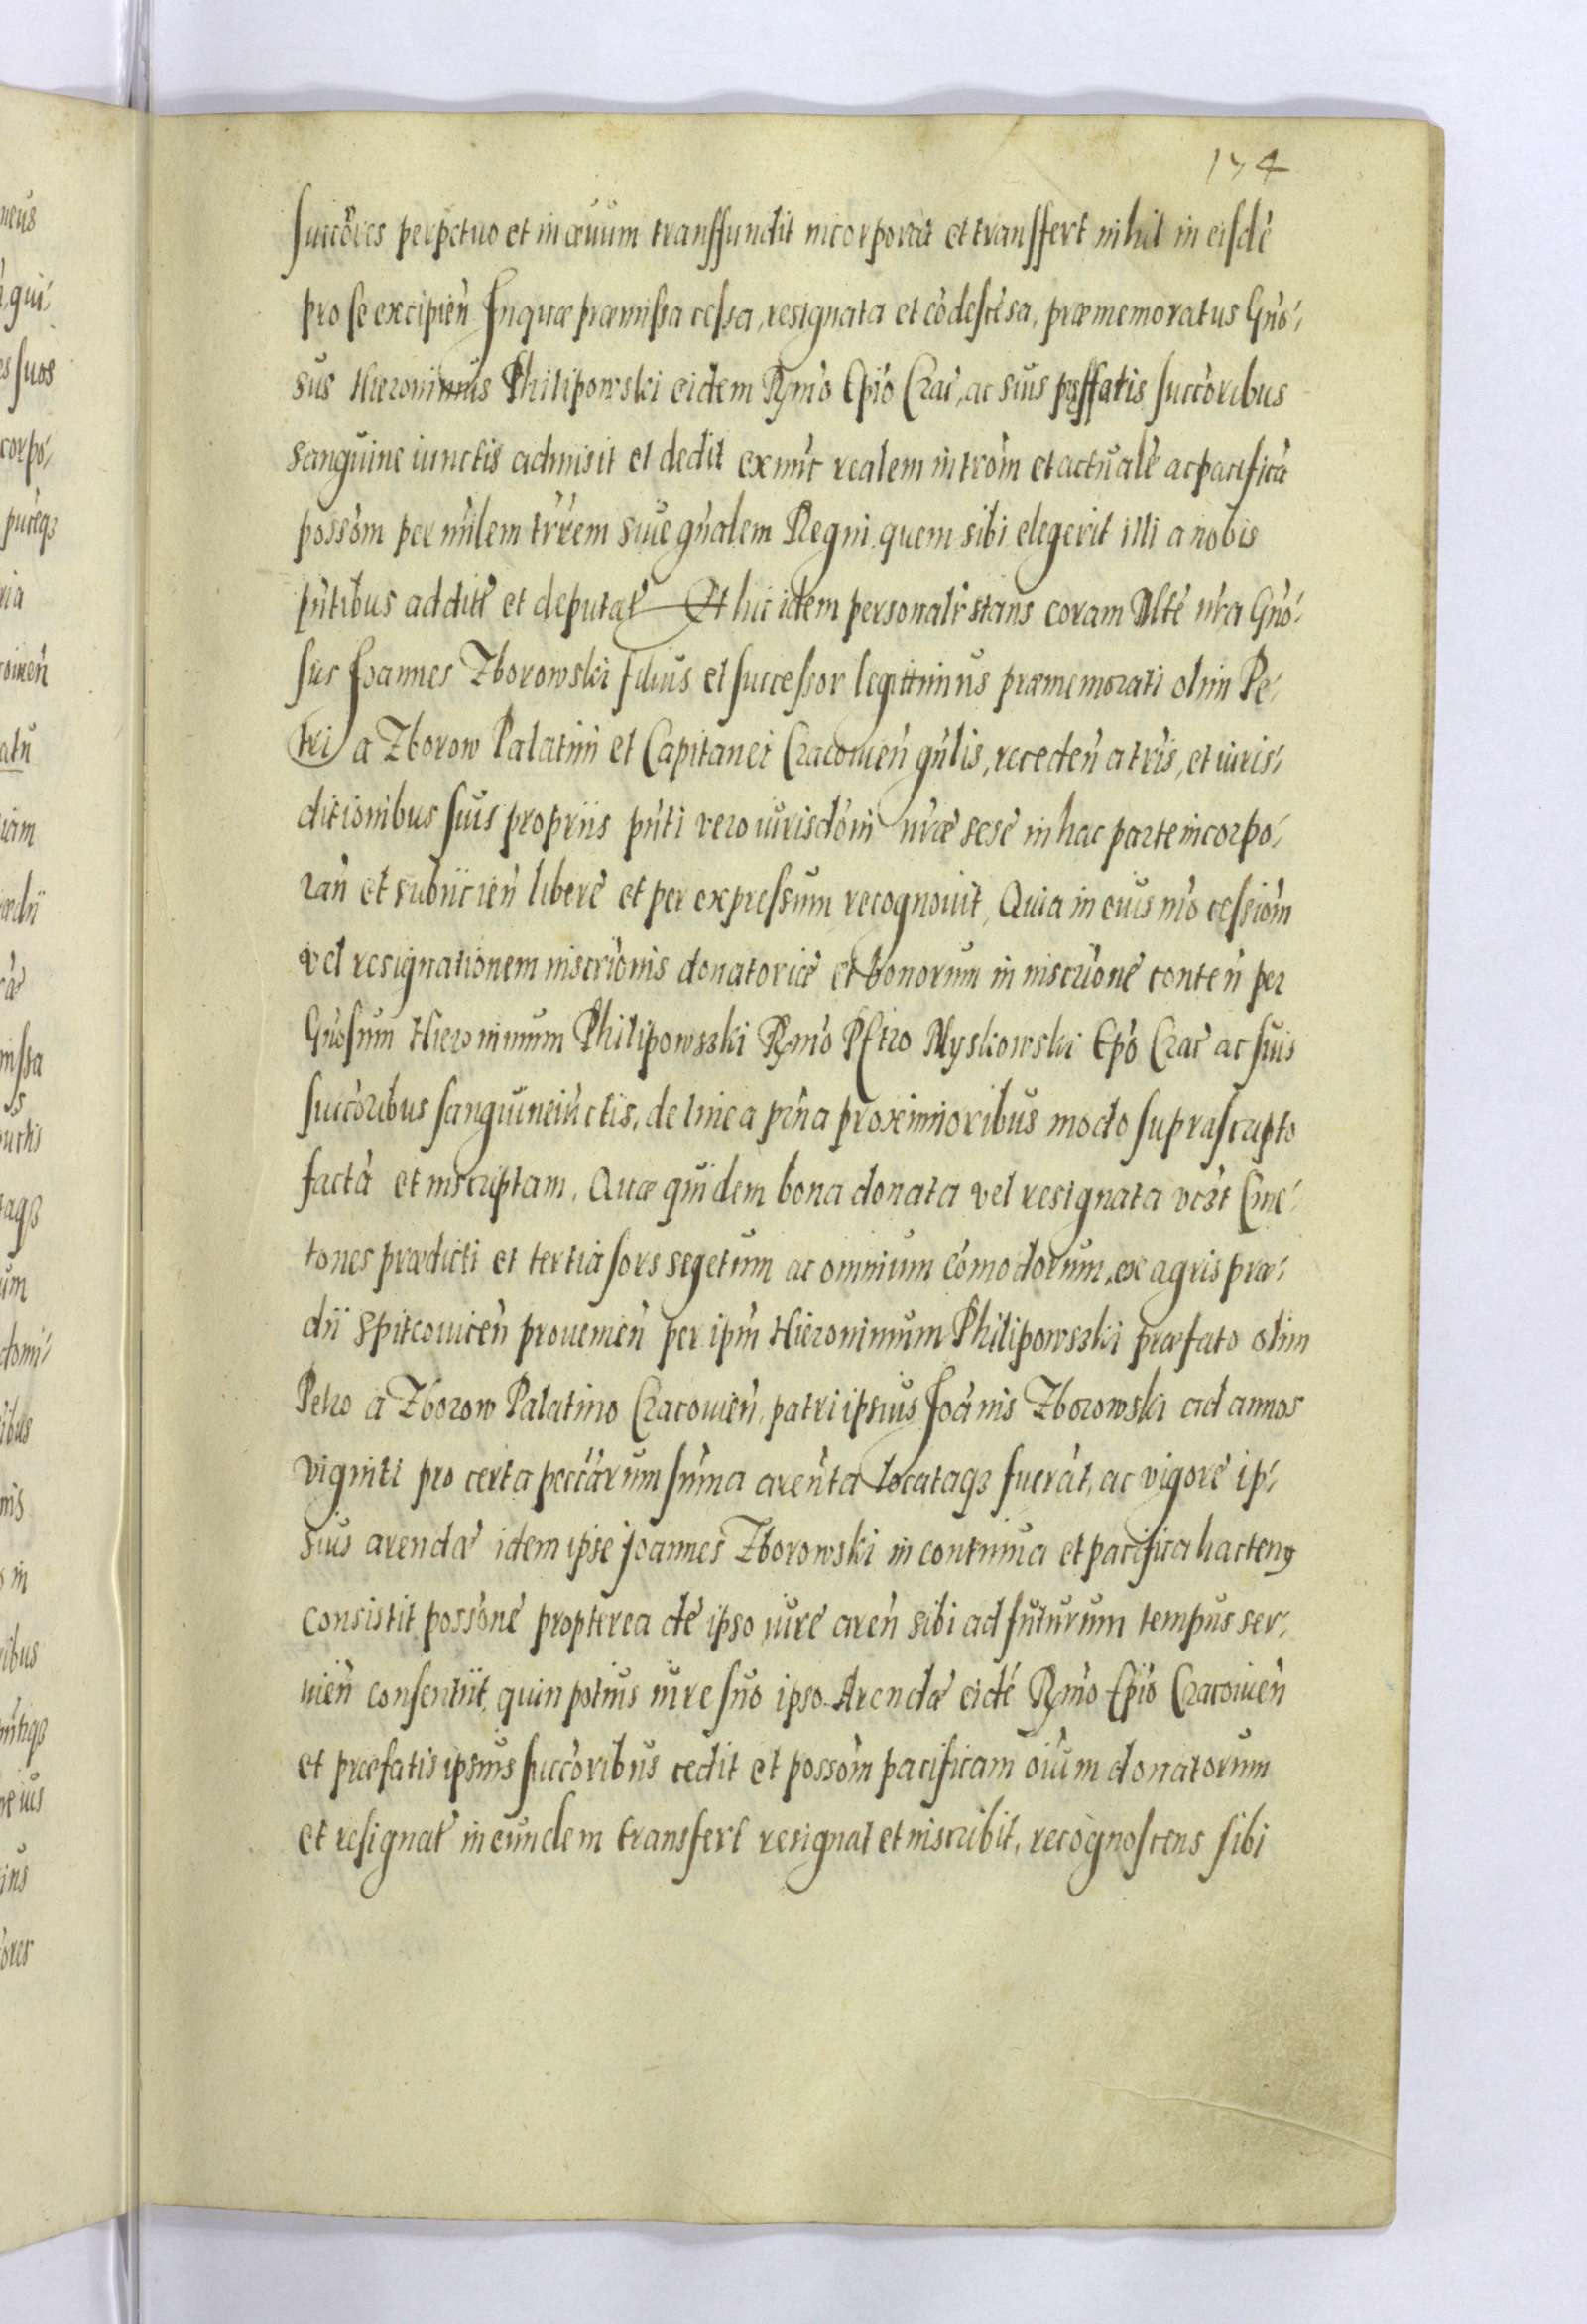 174
succ̃ores perpetuo et in æuum transsfundit incorporat et transsfert nihil in eisdẽ
pro se excipieñ Inquæ præmissa cessa, resignata et cõdescẽsa, præmemoratus Gño-
sus Hieronimus Philipowski eidem Rmõ Epĩo Crac̃, ac suis pffatis succ̃oribus
sanguine iunctis admisit et dedit ex nũc realem introm̃ et actualẽ ac pacificã
possom̃ per mĩlem trr̃em siue gñalem Regni quem sibi elegerit illi a nobis
pñtibus additũ et deputat̃ Et hic idem personalr̃ stans coram Mltẽ nr̃a Gño-
sus Joannes Zborowski filius et successor legittimus præmemorati olim Pe-
tri a Zborow Palatini et Capitanei Cracouieñ gñlis, recedeñ a trĩs, et iuris-
ditionibus suis propriis pñti vero iurisdõni nr̃æ sese in hac parte incorpo-
rañ et subiicieñ liberẽ et per expressum recognouit, Quia in euismõ cessiom̃
vel resignationem inscrĩonis donatoriæ et bonorum in inscrĩone conteñ per
Gñosum Hieronimum Philipowszki Rmõ Petro Myskowski Epõ Crac̃ ac suis
succ̃oribus sanguineiũctis, de linea pr̃na proximioribus modo suprascripto
factã et inscriptam, Quæ quidem bona donata vel resignata vczt Cme-
tones prædicti et tertia sors segetum ac omnium cõmodorum, ex agris præ-
dii Spitcouiceñ prouenieñ per ipm̃ Hieronimum Philipowszki præfato olim
Petro a Zborow Palatino Cracouieñ, patri ipsius Joãnis Zborowski ad annos
viginti pro certa pecc̃arum sum̃a areñta locataqꝫ fuerãt, ac vigore ip-
sius arendæ idem ipse Joannes Zborowski in continua et pacifica hactenꝰ
consistit possone propterea de ipso iure areñ sibi ad futurum tempus ser-
uieñ consentiit, quin potius iure suo ipso Arendæ eidẽ Rmõ Epĩo Cracouieñ
et præfatis ipsius succ̃oribus cedit et possom̃ pacificam oĩum donatorum
et resignat̃ in eundem transfert resignat et inscribit, recognoscens sibi